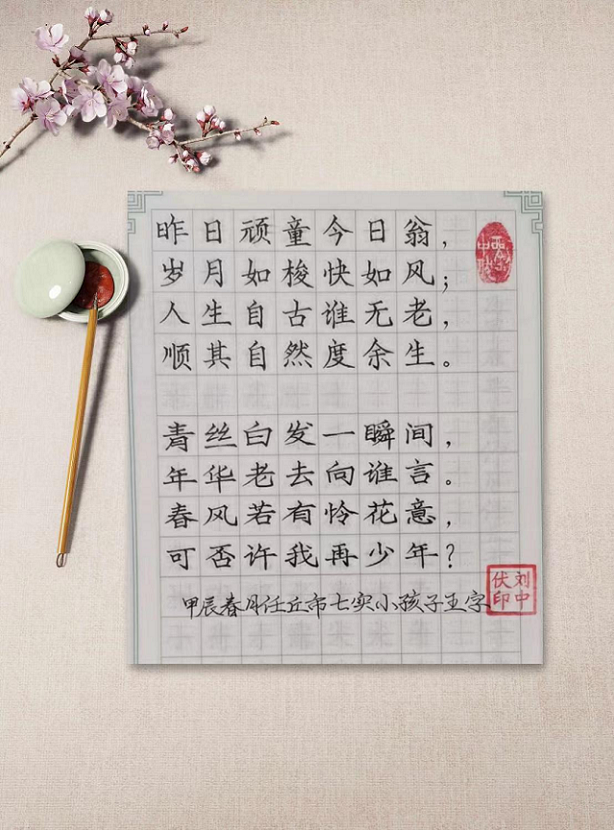 昨日顽童今日翁，
岁月如梭快如风；
人生自古谁无老，
顺其自然度余生。
青丝白发一瞬间，
年华老去向谁言。
春风若有怜花意，
可否许我再少年？
甲辰春月任丘市七实小孩子王字
刘中
伏印